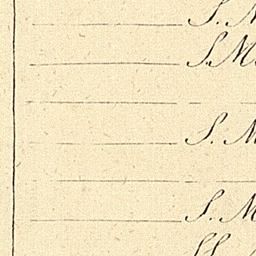 S. M
S. M
S. M
S. M